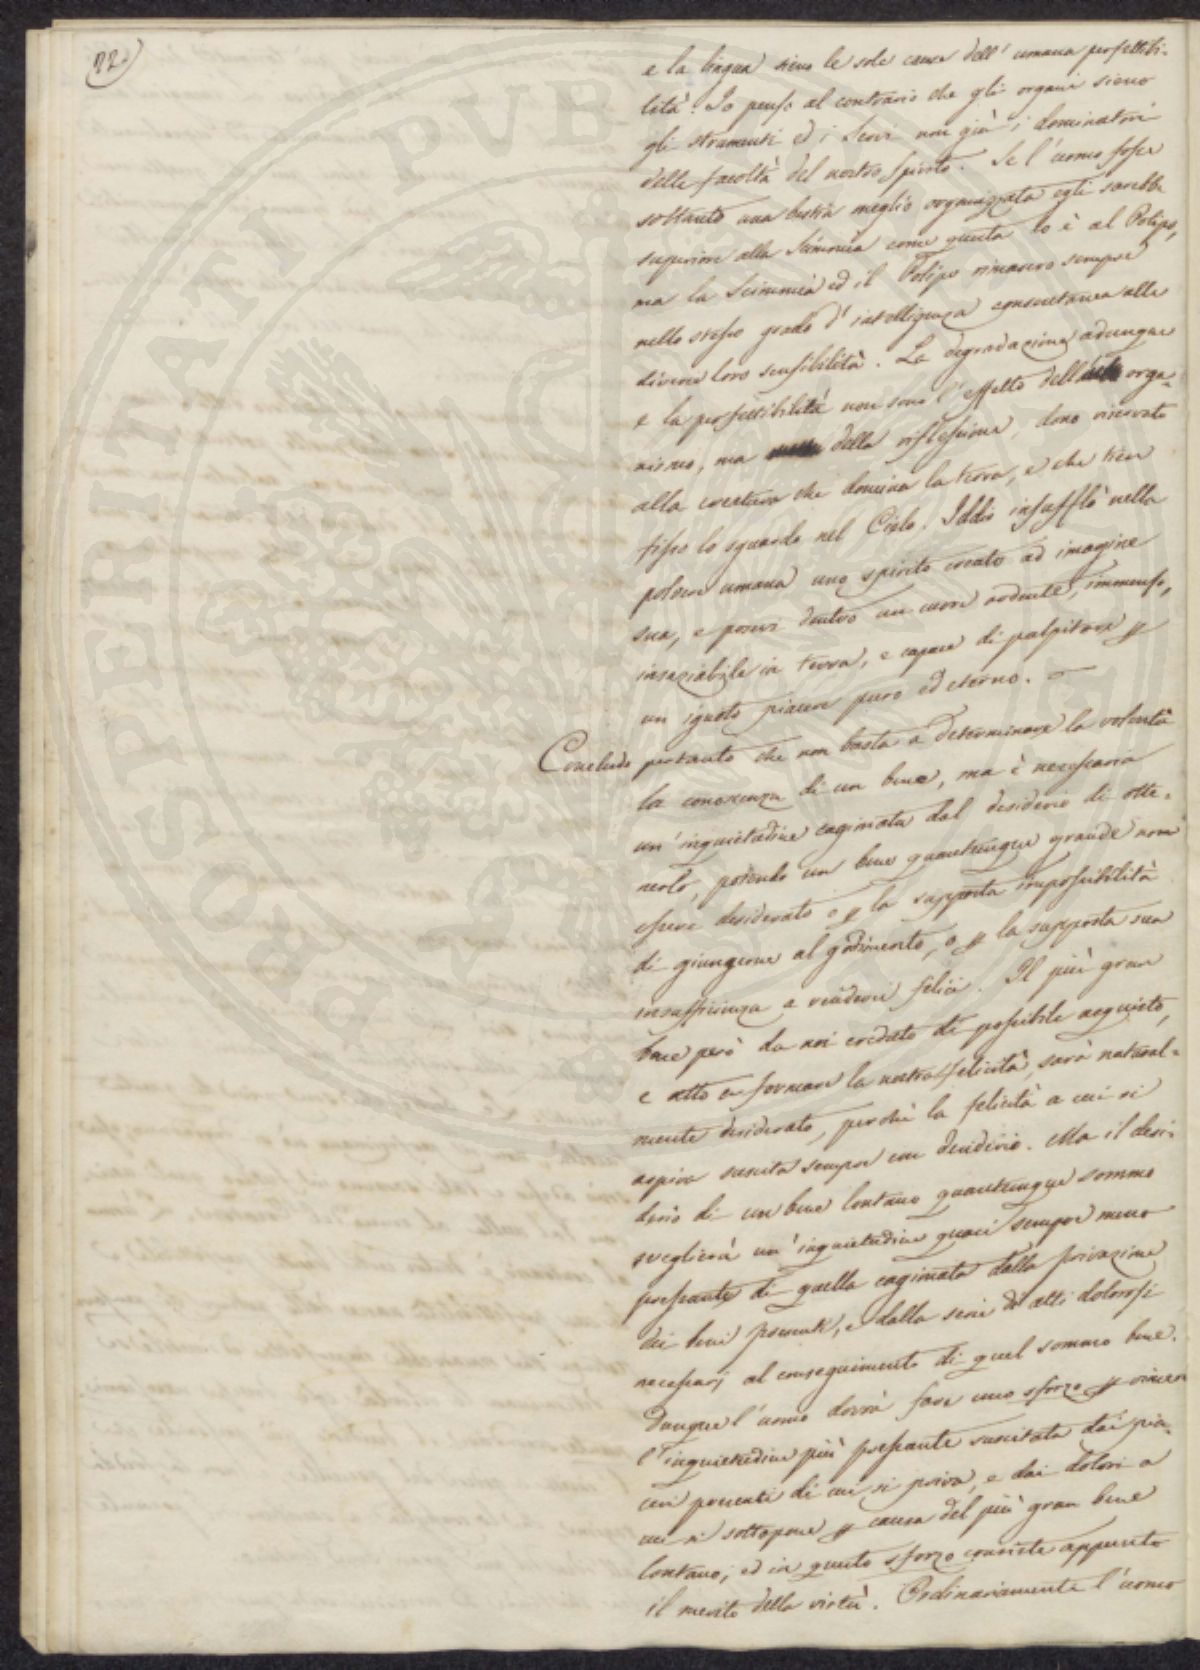 22.
e la lingua sieno le sole cause dell'umana perfettibi-
lità. Io penso al contrario che gli organi sieno
gli stromenti ed i servi non già i dominatori
delle facoltà del nostro spirito. Se l'uomo fosse
soltanto una bestia meglio organizzata egli sarebbe
superiore alla Scimmia come questa lo è al Polipo,
ma la Scimmia ed il Polipo rimasero sempre
nello stesso grado d'intelligenza consentanea alla
diversa loro sensibilità. La degradazione adunque
e la perfettibilità non sono l'effetto dell' orga-
nismo, ma della riflessione, dono riservato
alla creatura che domina la terra, e che tien
fisso lo sguardo nel Cielo. Iddio insufflò nella
polvere umana uno spirito creato ad imagine
sua, e posevi dentro un cuore ardente, immenso,
insaziabile in terra, e capace di palpitare p
un ignoto piacere puro ed eterno. =
Concludo pertanto che non basta a determinare la volontà
la conoscenza di un bene, ma è necessaria
un'inquietudine cagionata dal desiderio di otte-
nerlo, potendo un bene quantunque grande non
essere desiderato o p la supposta impossibilità
di giungerne al godimento, o p la supposta sua
insufficienza a renderci felici. Il più gran
bene però da noi creduto di possibile acquisto,
e atto a formare la nostra felicità, sarà natural-
mente desiderato, perchè la felicità a cui si
aspira suscita sempre un desiderio. Ma il desi-
derio di un bene lontano quantunque sommo
sveglierà un'inquietudine quasi sempre meno
pressante di quella cagionata dalla privazione
dei beni presenti, e dalla serie di atti dolorosi
necessarj al conseguimento di quel sommo bene.
Dunque l'uomo dovrà fare uno sforzo p vincere
l'inquietudine più pressante suscitata dai pia-
ceri presenti di cui si priva, e dai dolori a
cui si sottopone p causa del più gran bene
lontano; ed in questo sforzo consiste appunto
il merito della virtù. Ordinariamente l'uomo
PROSPERITATI PVB